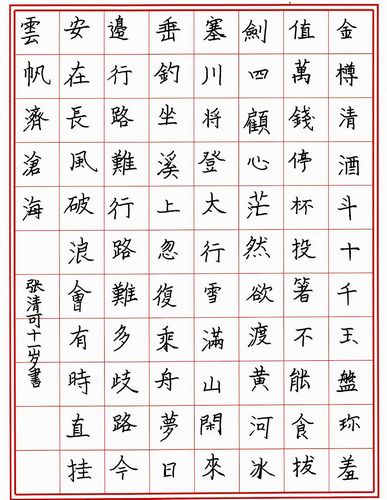 金樽清酒斗十千玉盤珎羞
值萬錢停杯投箸不能食拔
劍四顧心茫然欲渡黄河冰
塞川将登太行雪滿山閑來
垂釣坐溪上忽復乘舟夢日
邊行路難行路難多歧路今
安在長風破浪會有時直挂
雲帆濟滄海
张清可十一岁書